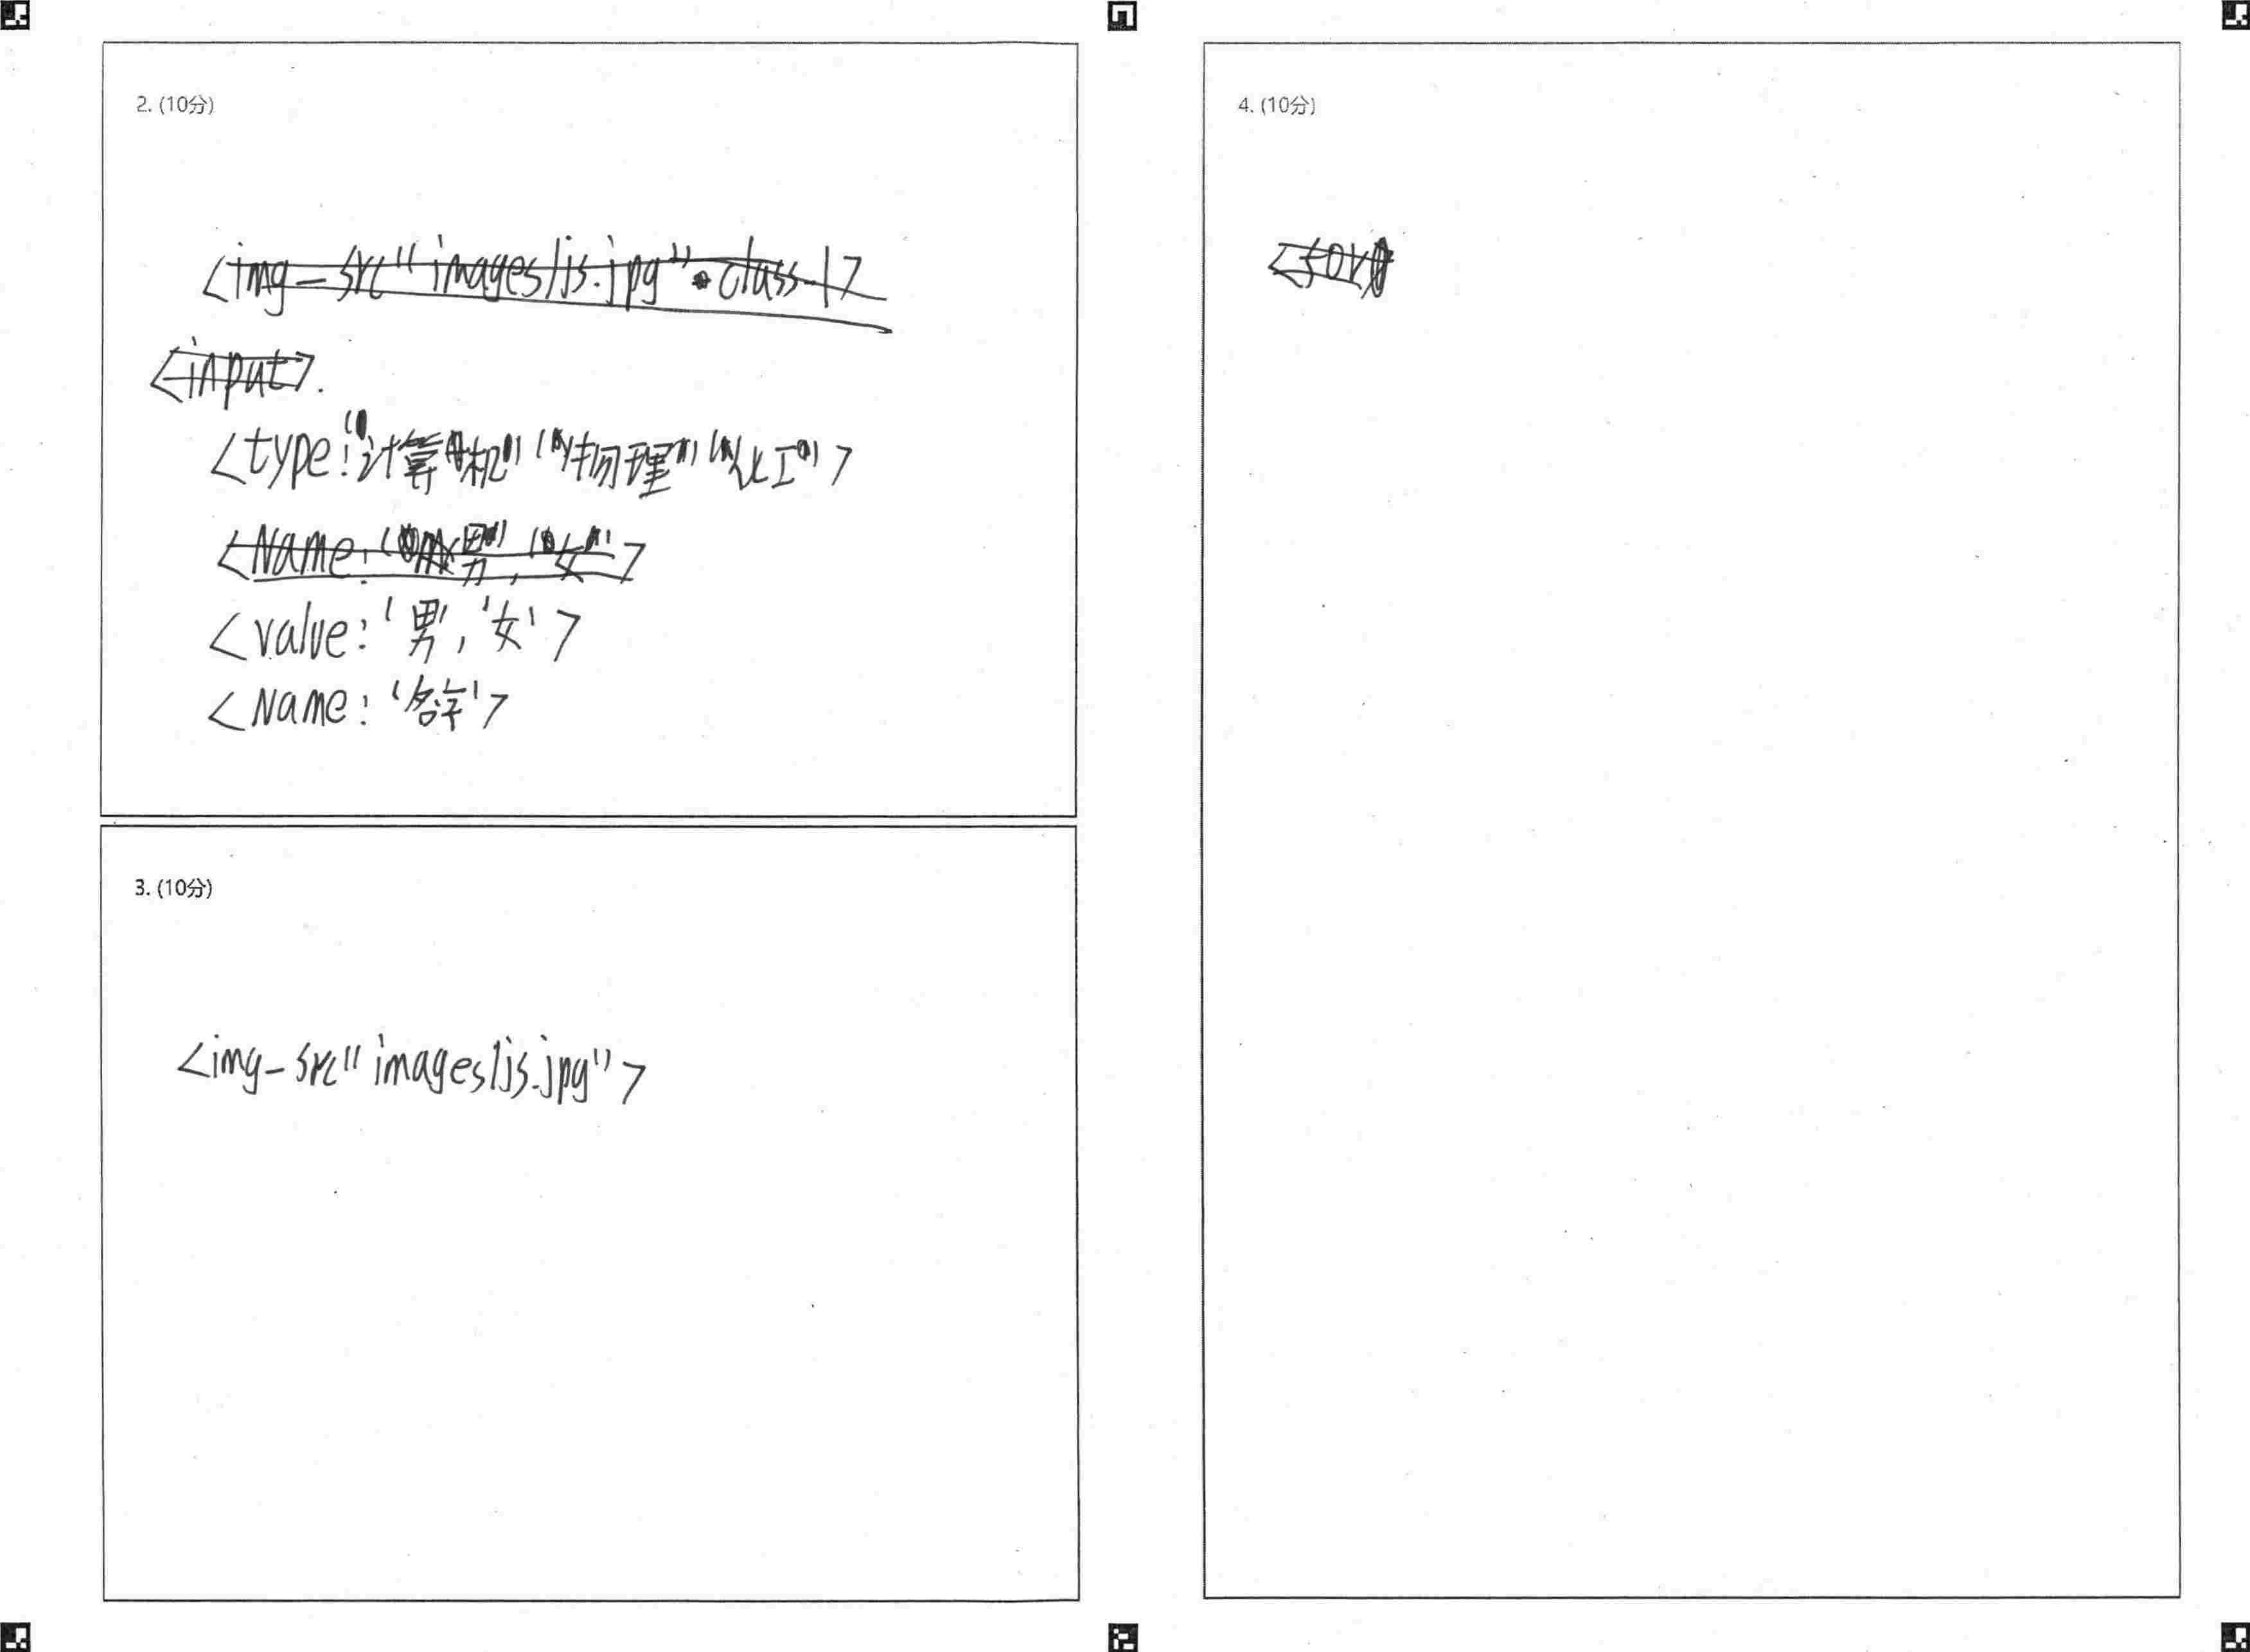 2. (10分)
<img-src"images/js.jpg" class-1>
<input>.
<type:'计算机' '物理' '化工'>
<Name: '男', '女'>
<value: '男', '女'>
<Name: '名字'>
3. (10分)
<img-src"images/js.jpg">
4. (10分)